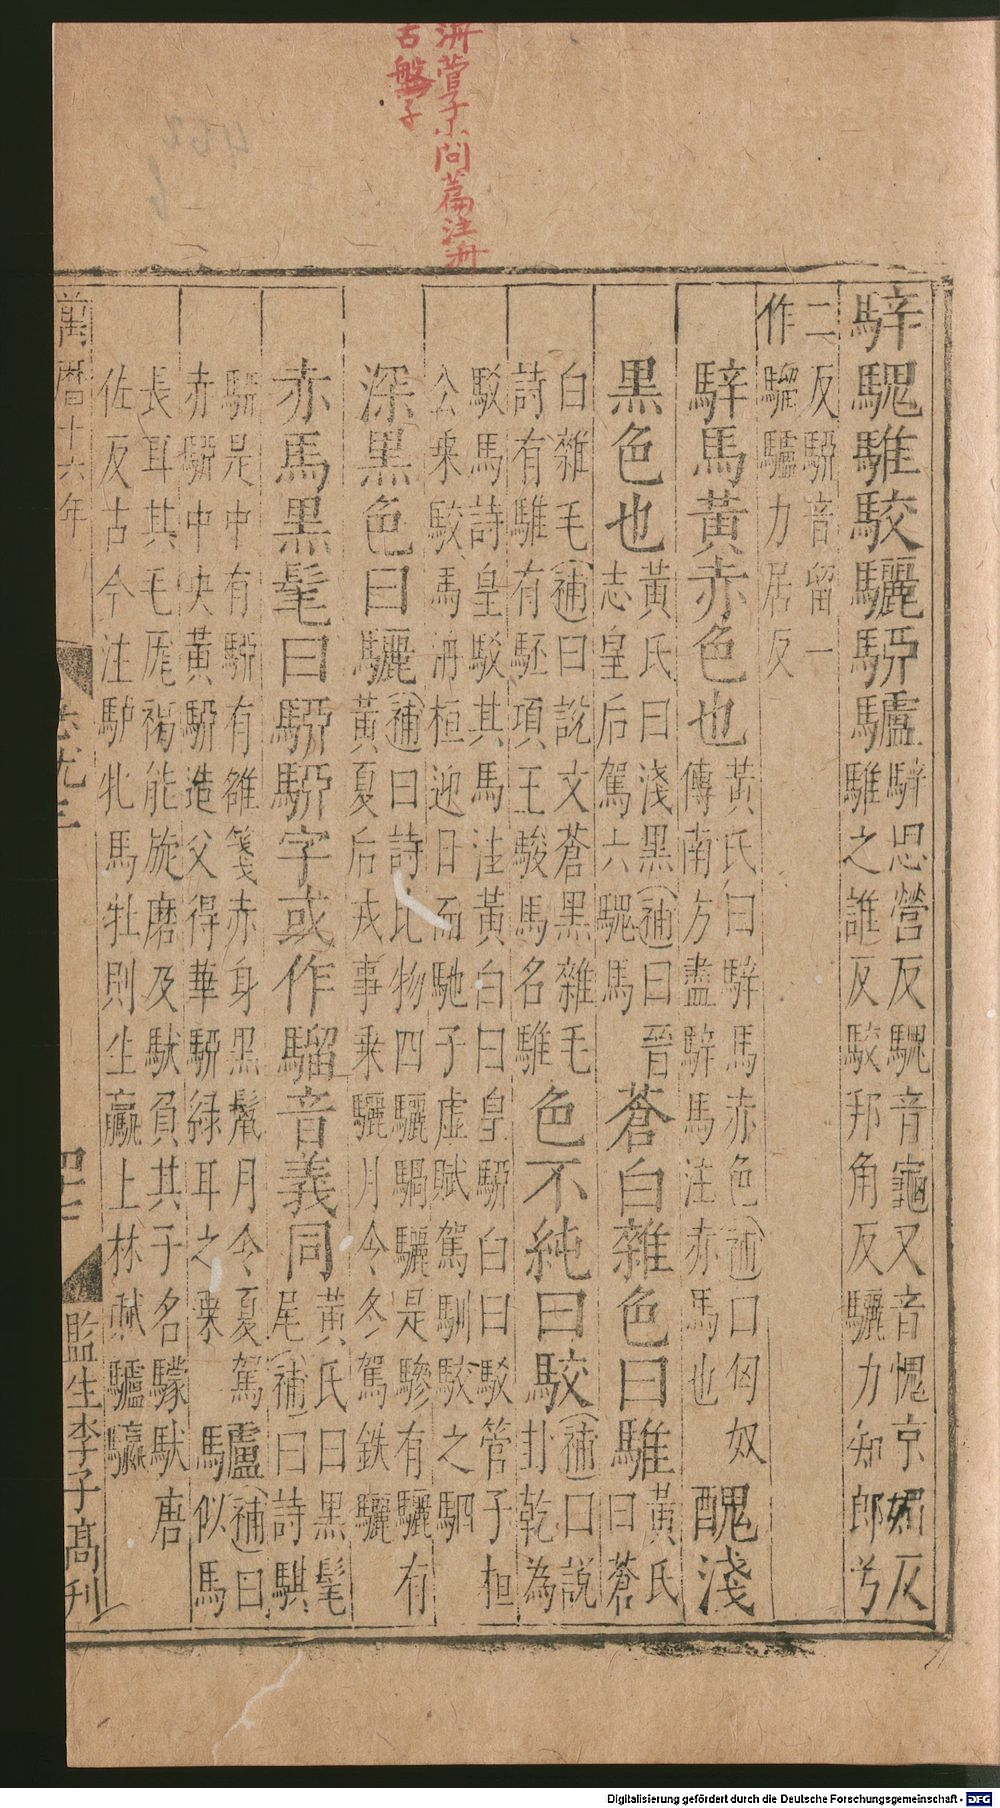 泋管子小問篇注泋
古盤字
騂騩騅駮驪騮驢騂思營反騩音龜又音愧京媚反
騅之誰反駮邦角反驪力知郎兮
二反騮音留一
作騮驢力居反
騂馬黃赤色也黃氏曰騂馬赤色補曰匈奴
傳南方盡騂馬注赤馬也
騩淺
黑色也黃氏曰淺黑補曰晉
志皇后駕六騩馬
蒼白雜色曰騅黃氏
曰蒼
白雜毛補曰說文蒼黑雜毛
詩有騅有駓項王駿馬名騅
色不純曰駮補曰說
卦乾為
駁馬詩皇駁其馬注黃白曰皇騮白曰駁管子桓
公乘駮馬洀桓迎日而馳子虛賦駕馴駮之駟
深黑色曰驪補曰詩比物四驪騧驪是驂有驪有
黃夏后戎事乘驪月令冬駕鉄驪
赤馬黑髦曰騮騮字或作騮音義同黃氏曰黑髦
尾補曰詩騏
騮是中有騮有雒箋赤身黑鬣月令夏駕
赤騮中央黃騮造父得華騮綠耳之乘
驢補曰
馬似馬
長耳其毛尾褐能旋磨及馱負其子名驝馱唐
佐反古今注驢牝馬牡則生驘上林賦驢驘
萬曆十六年
急尤三
四十二
監生李子高刊
Digitalisierung gefördert durch die Deutsche Forschungsgemeinschaft - DFG